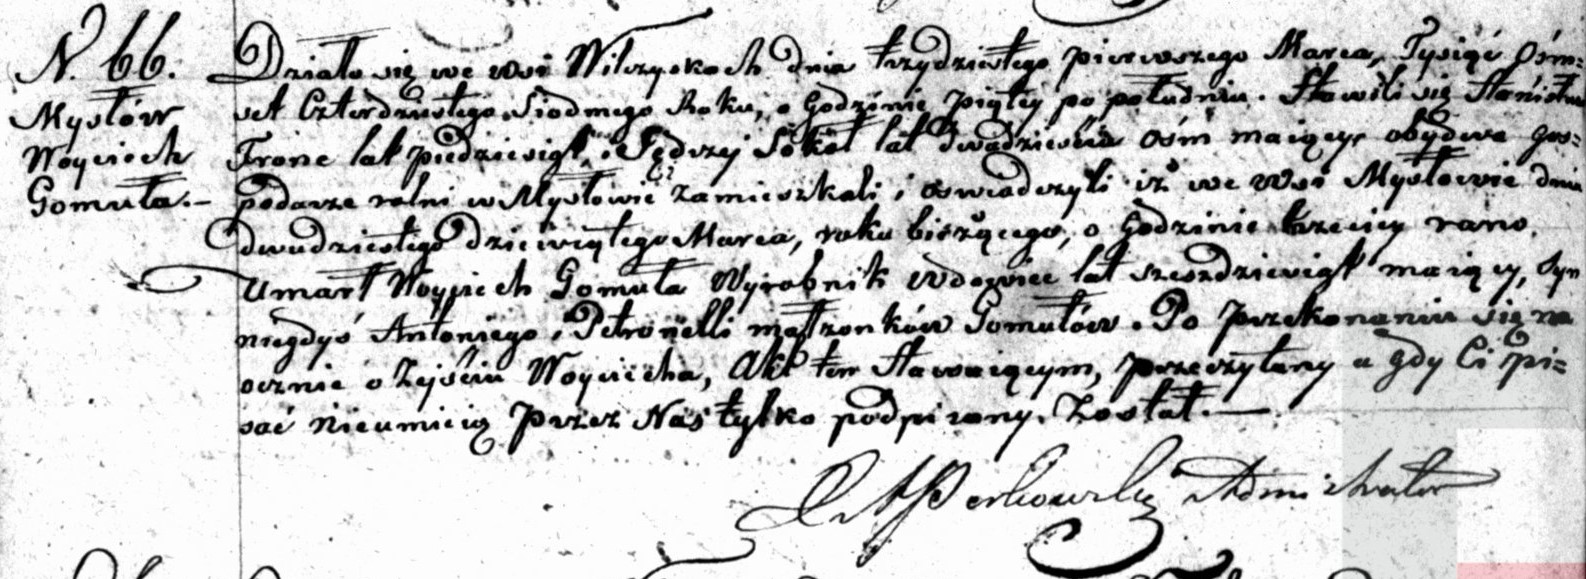 N. 66.
Mysłów
Woyciech
Gomuła.-
Działo się we wsi Wilczyskach dnia trzydziestego pierwszego Marca, Tysiąc Ośm=
set Czterdziestego Siodmego Roku, o Godzinie piątey po południu. Stawili się Stanisław
Trone lat piędziesiąt, i Jędrzej Sokoł lat dwadzieścia ośm maiący, obydwa gos=
podarze rolni w Mysłowie zamieszkali i oswiadczyli iż we Wsi Mysłowie dnia
dwudziestego dziewiątego Marca, roku bieżącego, o Godzinie trzeciey rano,
Umarł Woyciech Gomuła Wyrobnik wdowiec lat szesdziesiąt maiący, Syn
niegdyś Antoniego i Petronelli małżonków Gomułów. Po przekonaniu się na
ocznie o Zejściu Woyciecha, Akt ten Stawaiącym, przeczytany a gdy Ci pi=
sać nieumieią przez Nas tylko podpisany. Został.—
Administrator